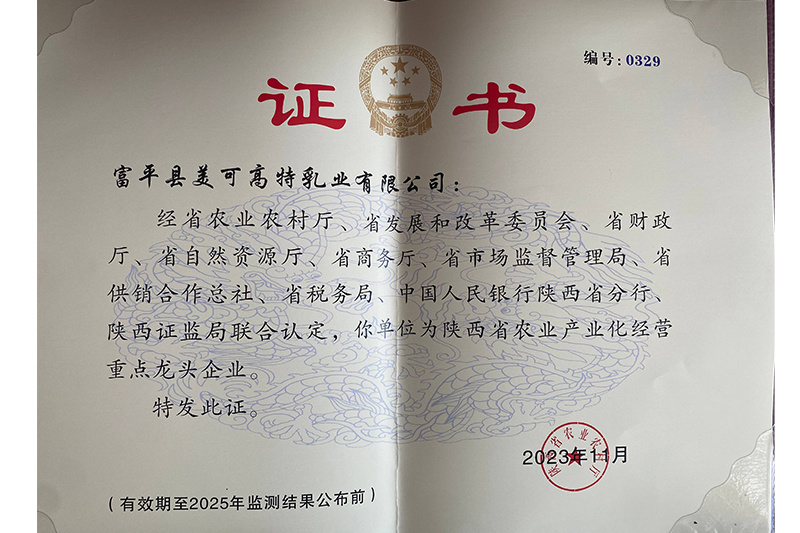 编号:0329
证 书
富平县美可高特乳业有限公司:
经省农业农村厅、省发展和改革委员会、省财政
厅、省自然资源厅、省商务厅、省市场监督管理局、省
供销合作总社、省税务局、中国人民银行陕西省分行、
陕西证监局联合认定,你单位为陕西省农业产业化经营
重点龙头企业。
特发此证。
陕西省农业农村厅
2023年11月
(有效期至2025年监测结果公布前)